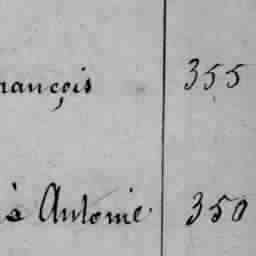 rançois 355
à Antonie 350